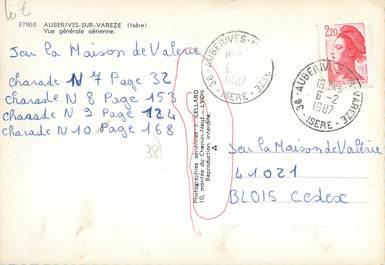 Lot
37968 AUBERIVES-SUR-VAREZE (Isère).
Vue générale aérienne.
Jeu la Maison de Valérie
charade N 7 Page 32
Charade N 8 Page 153
Charade N 9 Page 124
Charade N 10 Page 168
38
Photographies aériennes CELLARD
10, montée du Chemin-Neuf - LYON
Reproduction interdite
38 - AUBERIVES-S-VAREZE
6-2
1987
- ISERE -
2,20
Jeu la Maison de Valérie
41021
BLOIS Cedex